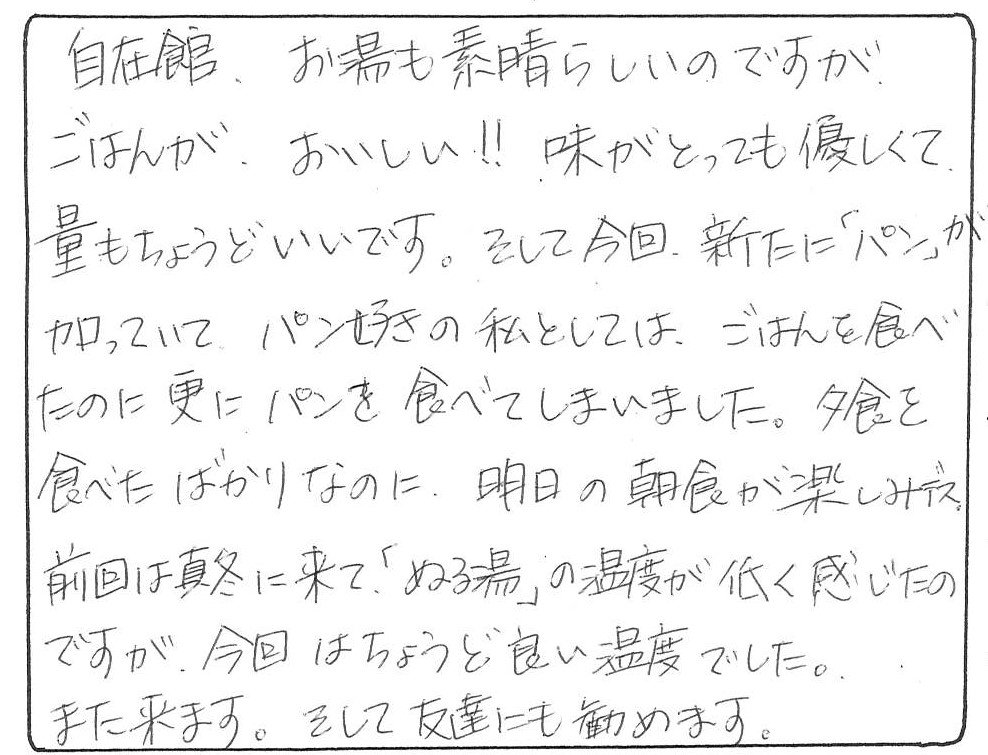 自在館、お湯も素晴らしいのですが、
ごはんが、おいしい!! 味がとっても優しくて、
量もちょうどいいです。そして今回、新たに「パン」が
加っていて、パン好きの私としては、ごはんを食べ
たのに更にパンを食べてしまいました。夕食を
食べたばかりなのに、明日の朝食が楽しみデス。
前回は真冬に来て、「ぬる湯」の温度が低く感じたの
ですが、今回はちょうど良い温度でした。
また来ます。そして友達にも勧めます。